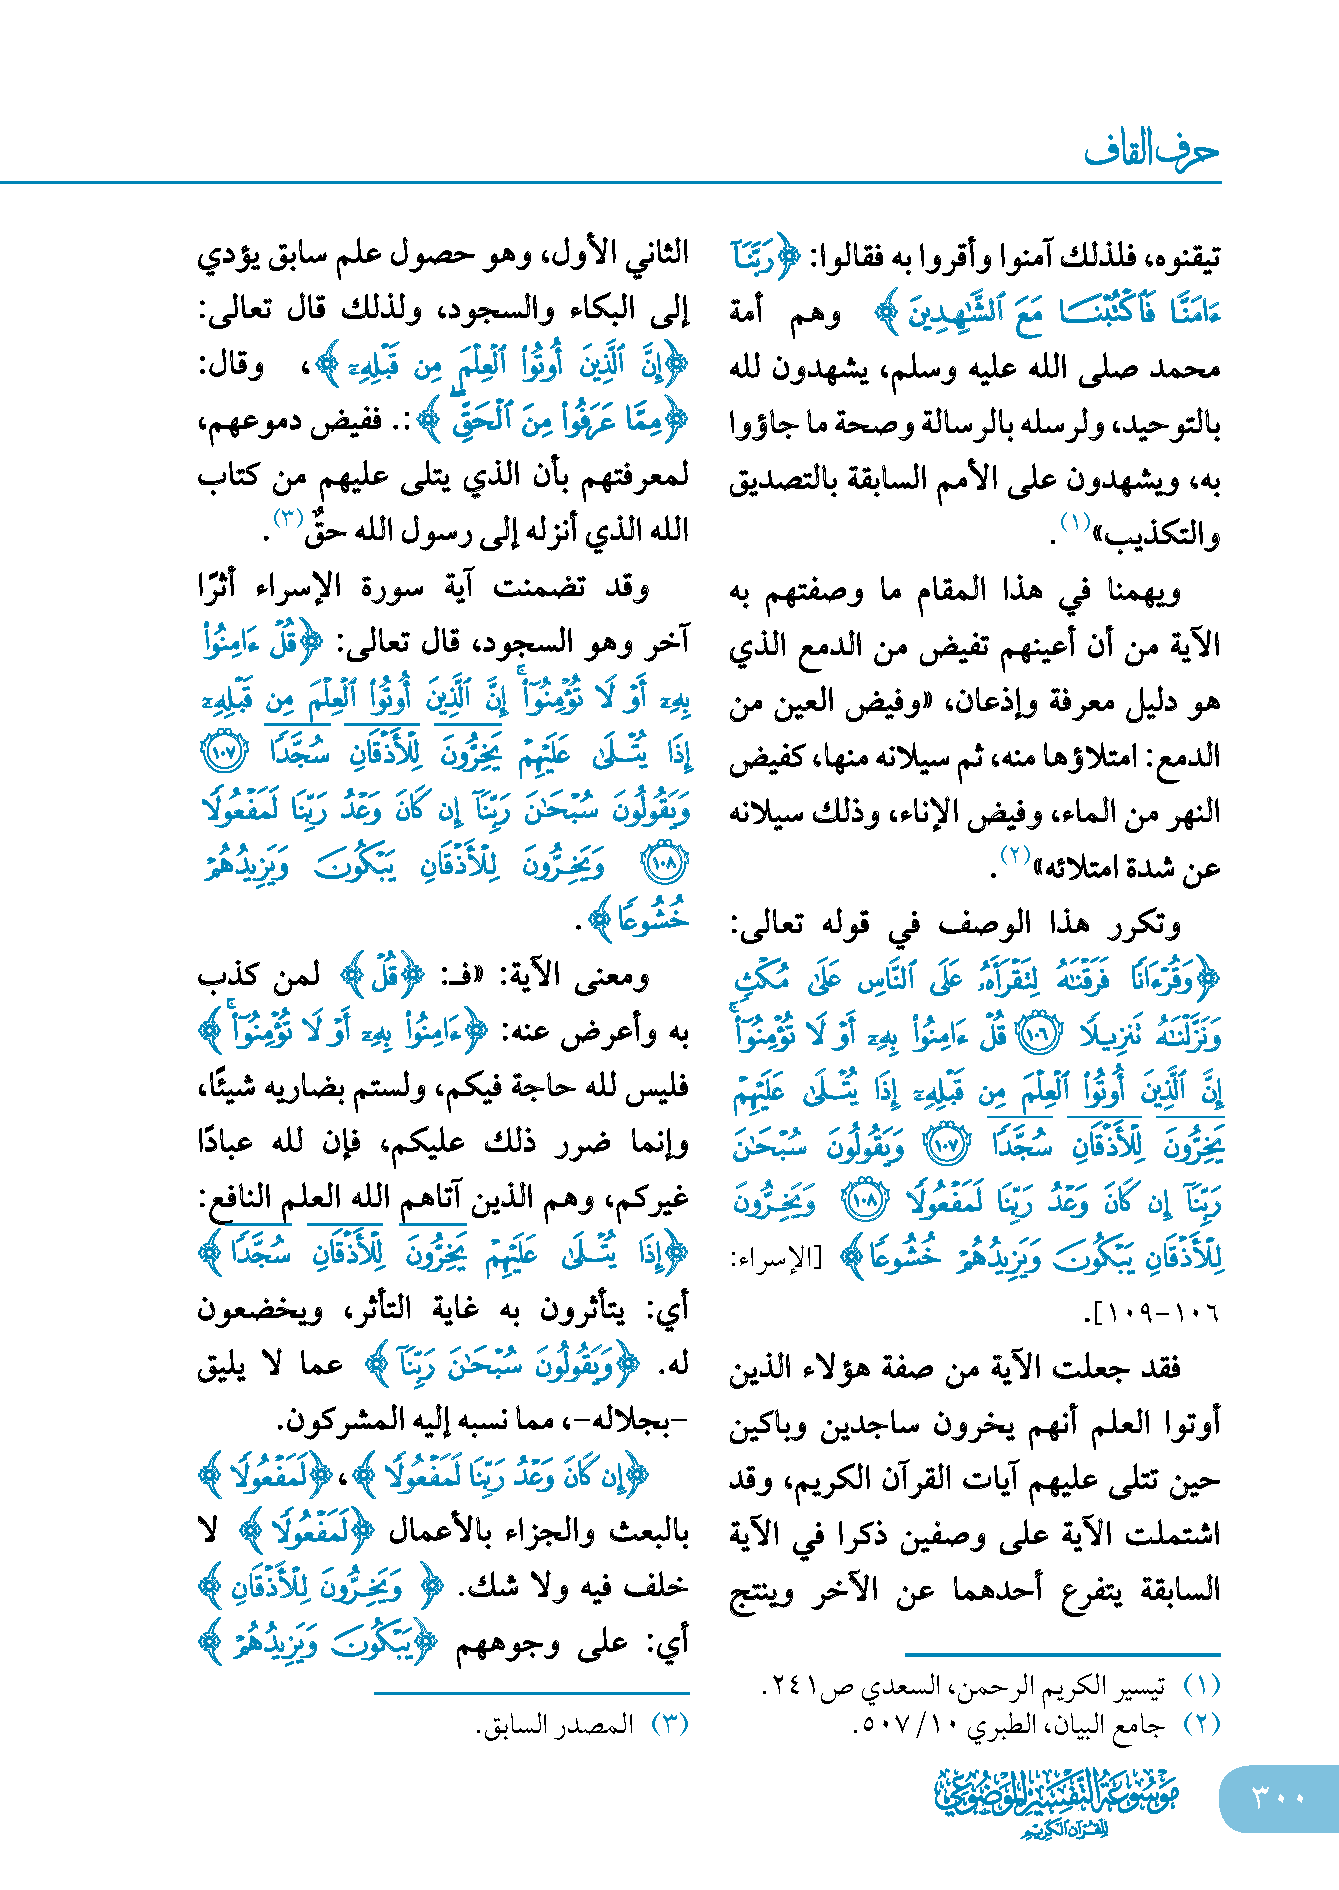 حرف القاف
تيقنوه، فلذلك آمنوا وأقروا به فقالوا: ﴿رَبَّنَآ
ءَامَنَّا فَٱكْتُبْنَا مَعَ ٱلشَّٰهِدِينَ﴾ وهم أمة
محمد صلى الله عليه وسلم، يشهدون لله
بالتوحيد، ولرسله بالرسالة وصحة ما جاؤوا
به، ويشهدون على الأمم السابقة بالتصديق
والتكذيب»(١).
ويهمنا في هذا المقام ما وصفتهم به
الآية من أن أعينهم تفيض من الدمع الذي
هو دليل معرفة وإذعان، «وفيض العين من
الدمع: امتلاؤها منه، ثم سيلانه منها، كفيض
النهر من الماء، وفيض الإناء، وذلك سيلانه
عن شدة امتلائه»(٢).
وتكرر هذا الوصف في قوله تعالى:
﴿وَقُرْءَانًا فَرَقْنَٰهُ لِتَقْرَأَهُۥ عَلَى ٱلنَّاسِ عَلَىٰ مُكْثٍ
وَنَزَّلْنَٰهُ تَنزِيلًا ١٠٦ قُلْ ءَامِنُوا۟ بِهِۦٓ أَوْ لَا تُؤْمِنُوٓا۟ ۚ
إِنَّ ٱلَّذِينَ أُوتُوا۟ ٱلْعِلْمَ مِن قَبْلِهِۦٓ إِذَا يُتْلَىٰ عَلَيْهِمْ
يَخِرُّونَ لِلْأَذْقَانِ سُجَّدًا ١٠٧ وَيَقُولُونَ سُبْحَٰنَ
رَبِّنَآ إِن كَانَ وَعْدُ رَبِّنَا لَمَفْعُولًا ١٠٨ وَيَخِرُّونَ
لِلْأَذْقَانِ يَبْكُونَ وَيَزِيدُهُمْ خُشُوعًا﴾ [الإسراء:
١٠٦-١٠٩].
فقد جعلت الآية من صفة هؤلاء الذين
أوتوا العلم أنهم يخرون ساجدين وباكين
حين تتلى عليهم آيات القرآن الكريم، وقد
اشتملت الآية على وصفين ذكرا في الآية
السابقة يتفرع أحدهما عن الآخر وينتج
(١) تيسير الكريم الرحمن، السعدي ص٢٤١.
(٢) جامع البيان، الطبري ١٠/ ٥٠٧.
الثاني الأول، وهو حصول علم سابق يؤدي
إلى البكاء والسجود، ولذلك قال تعالى:
﴿إِنَّ ٱلَّذِينَ أُوتُوا۟ ٱلْعِلْمَ مِن قَبْلِهِۦٓ﴾، وقال:
﴿مِمَّا عَرَفُوا۟ مِنَ ٱلْحَقِّ ۖ﴾:. ففيض دموعهم،
لمعرفتهم بأن الذي يتلى عليهم من كتاب
الله الذي أنزله إلى رسول الله حقٌ(٣).
وقد تضمنت آية سورة الإسراء أثرًا
آخر وهو السجود، قال تعالى: ﴿قُلْ ءَامِنُوا۟
بِهِۦٓ أَوْ لَا تُؤْمِنُوٓا۟ ۚ إِنَّ ٱلَّذِينَ أُوتُوا۟ ٱلْعِلْمَ مِن قَبْلِهِۦٓ
إِذَا يُتْلَىٰ عَلَيْهِمْ يَخِرُّونَ لِلْأَذْقَانِ سُجَّدًا ١٠٧
وَيَقُولُونَ سُبْحَٰنَ رَبِّنَآ إِن كَانَ وَعْدُ رَبِّنَا لَمَفْعُولًا
١٠٨ وَيَخِرُّونَ لِلْأَذْقَانِ يَبْكُونَ وَيَزِيدُهُمْ
خُشُوعًا﴾.
ومعنى الآية: «فـ: ﴿قُلْ﴾ لمن كذب
به وأعرض عنه: ﴿ءَامِنُوا۟ بِهِۦٓ أَوْ لَا تُؤْمِنُوٓا۟ ۚ﴾
فليس لله حاجة فيكم، ولستم بضاريه شيئًا،
وإنما ضرر ذلك عليكم، فإن لله عبادًا
غيركم، وهم الذين آتاهم الله العلم النافع:
﴿إِذَا يُتْلَىٰ عَلَيْهِمْ يَخِرُّونَ لِلْأَذْقَانِ سُجَّدًا﴾
أي: يتأثرون به غاية التأثر، ويخضعون
له. ﴿وَيَقُولُونَ سُبْحَٰنَ رَبِّنَآ﴾ عما لا يليق
-بجلاله-، مما نسبه إليه المشركون.
﴿إِن كَانَ وَعْدُ رَبِّنَا لَمَفْعُولًا﴾، ﴿لَمَفْعُولًا﴾
بالبعث والجزاء بالأعمال ﴿لَمَفْعُولًا﴾ لا
خلف فيه ولا شك. ﴿وَيَخِرُّونَ لِلْأَذْقَانِ﴾
أي: على وجوههم ﴿يَبْكُونَ وَيَزِيدُهُمْ﴾
(٣) المصدر السابق.
موسوعة التفسير الموضوعي
للقرآن الكريم
٣٠٠